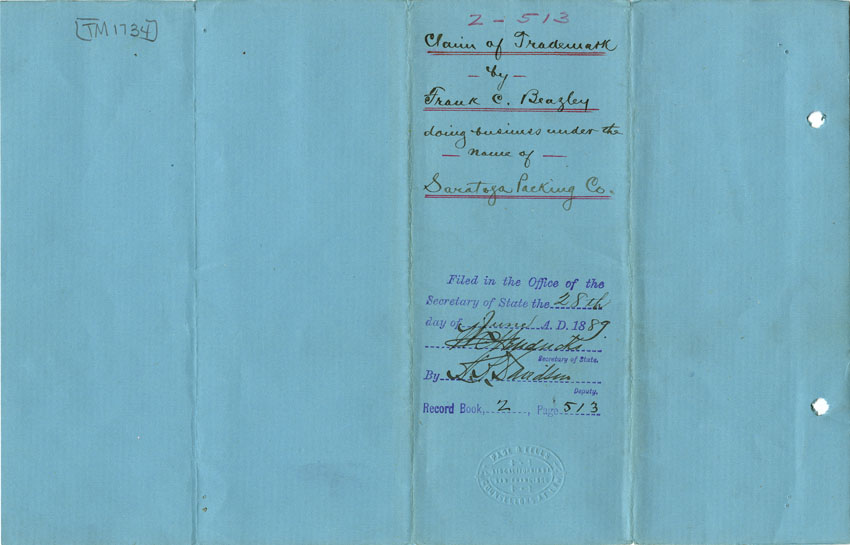 [TM 1734]
2 - 513
Claim of Trademark
- by -
Frank C. Beazley
doing business under the
- name of -
Saratoga Packing Co.
Filed in the Office of the
Secretary of State the 28th
day of June A.D. 1889
Secretary of State.
By
Deputy.
Record Book, 2, Page 513
SAN FRANCISCO